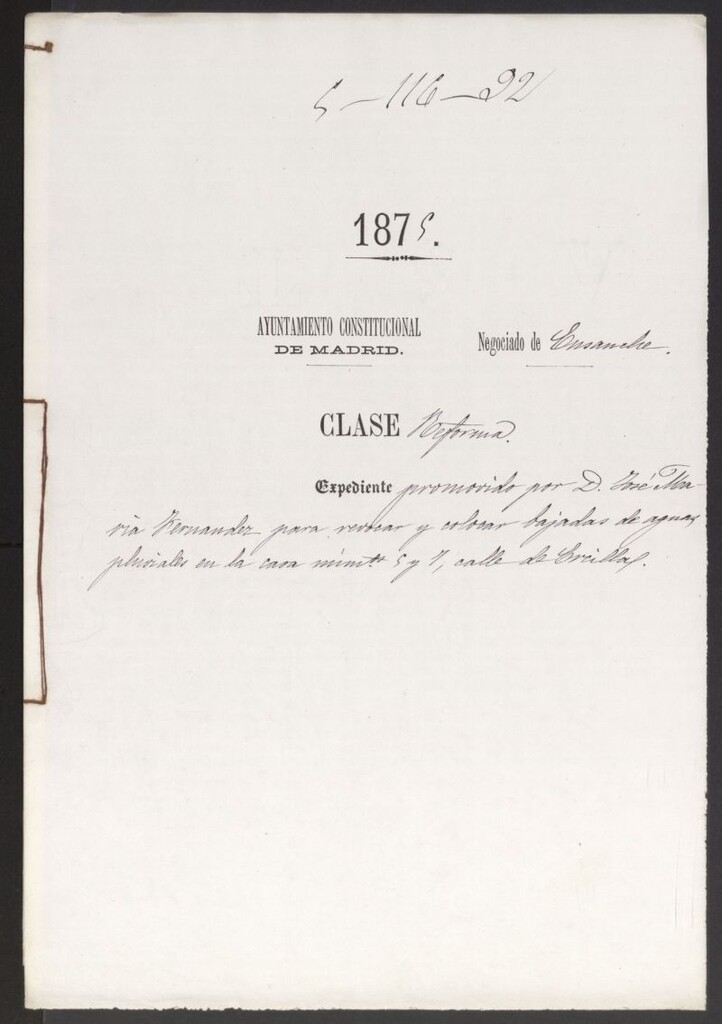 5-116-92
1875.
AYUNTAMIENTO CONSTITUCIONAL
DE MADRID.
Negociado de Ensanche.
CLASE Reforma.
Expediente promovido por D. José Ma-
ria Fernandez para revocar y colocar bajadas de aguas
pluviales en la casa núms. 5 y 7, calle de Ercilla.